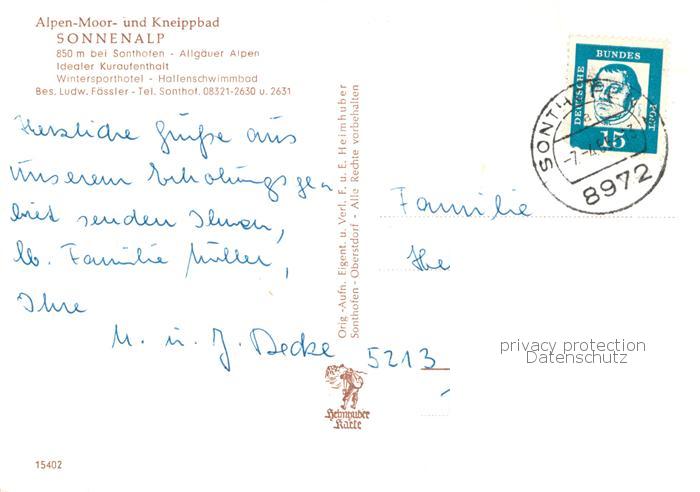 Alpen-Moor- und Kneippbad
SONNENALP
850 m bei Sonthofen - Allgäuer Alpen
Idealer Kuraufenthalt
Wintersporthotel - Hallenschwimmbad
Bes. Ludw. Fässler - Tel. Sonthof. 08321-2630 u. 2631
Herzliche Grüße aus
unserem Erholungsge-
biet senden Ihnen,
lb. Familie Müller,
Ihre
M. u. J. Decke
15402
Orig.-Aufn. Eigent. u. Verl. F. u. E. Heimhuber
Sonthofen - Oberstdorf - Alle Rechte vorbehalten
Heimhuber
Karte
DEUTSCHE
BUNDES
POST
15
8972
Familie
He
5213
privacy protection
Datenschutz